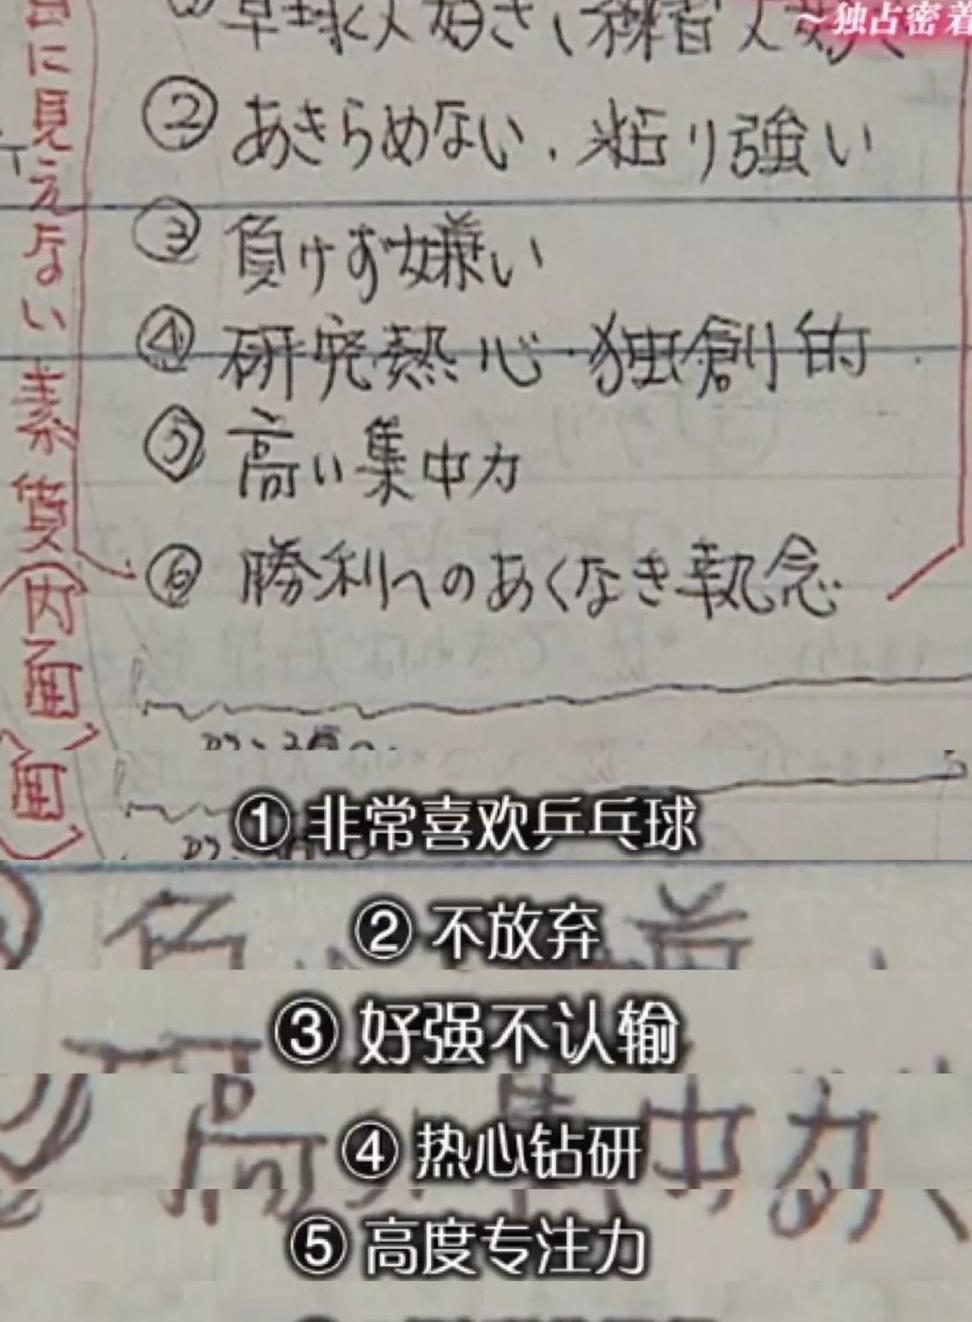 ～独占密着
卓球大好き、練習大好き
②あきらめない、粘り強い
③負けず嫌い
④研究熱心・独創的
⑤高い集中力
⑥勝利へのあくなき執念
に見えない素質(内面)
面)
①非常喜欢乒乓球
②不放弃
③好强不认输
④热心钻研
高い集中力
⑤高度专注力